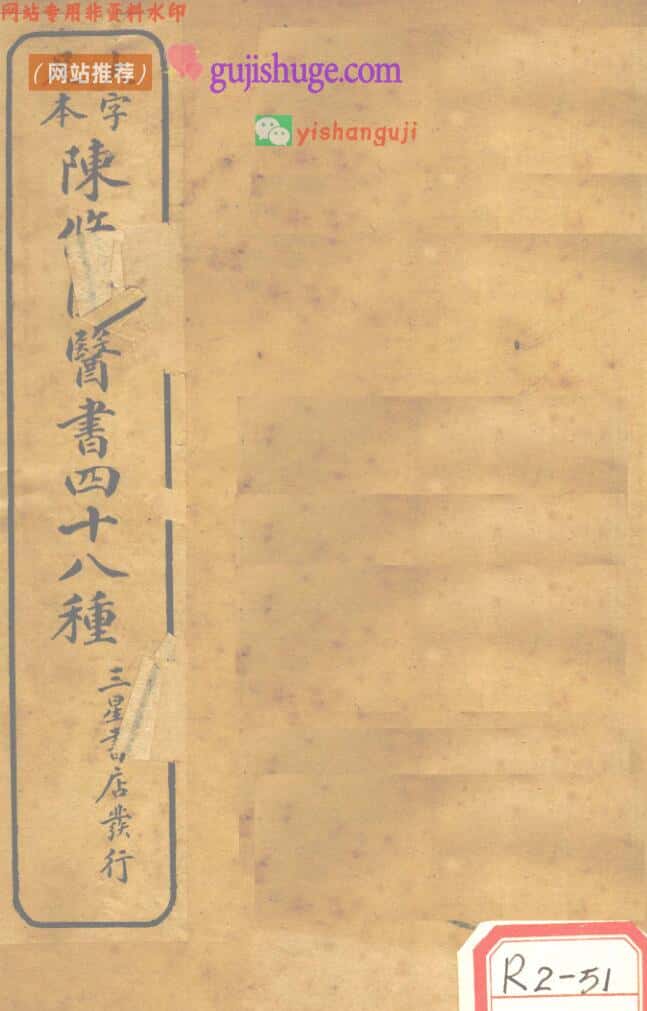 网站专用非资料水印
（网站推荐）
gujishuge.com
yishanguji
字
本
陳修
醫書四十八種
三星書店發行
R2-51